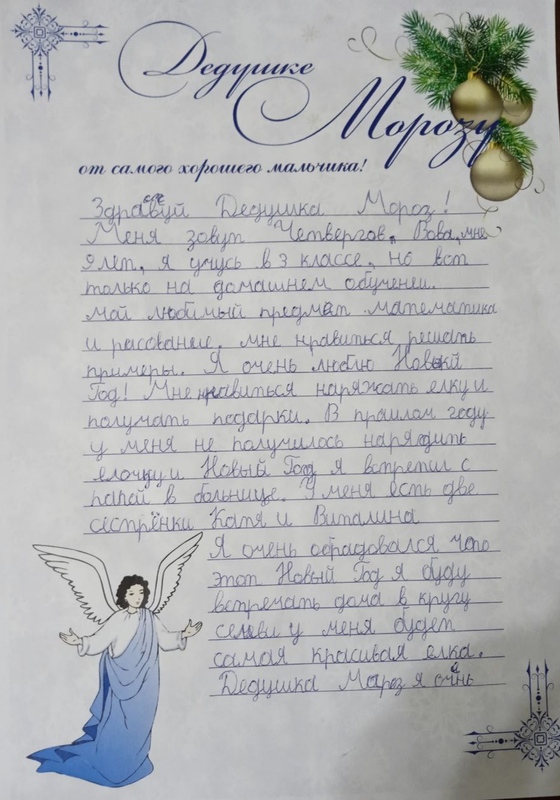 Дедушке
Морозу
от самого хорошего мальчика!
Здравствуй Дедушка Мороз!
Меня зовут Четвергов, Вова, мне
9 лет, я учусь в 3 классе, но вот
только на домашнем обученеи.
май любимый предмет математика
и расование, мне нравиться решать
примеры. Я очень люблю Новый
Год! Мне нравиться наряжать елку и
получать подарки. В прашлом году
у меня не получилось нарядить
елочку и Новый Год я встретил с
папай в больнице. У меня есть две
сестрёнки Катя и Виталина
Я очень обрадовался что
этот Новый Год я буду
встречать дома в кругу
семьи у меня будет
самая красивая елка.
Дедушка Мороз я очень